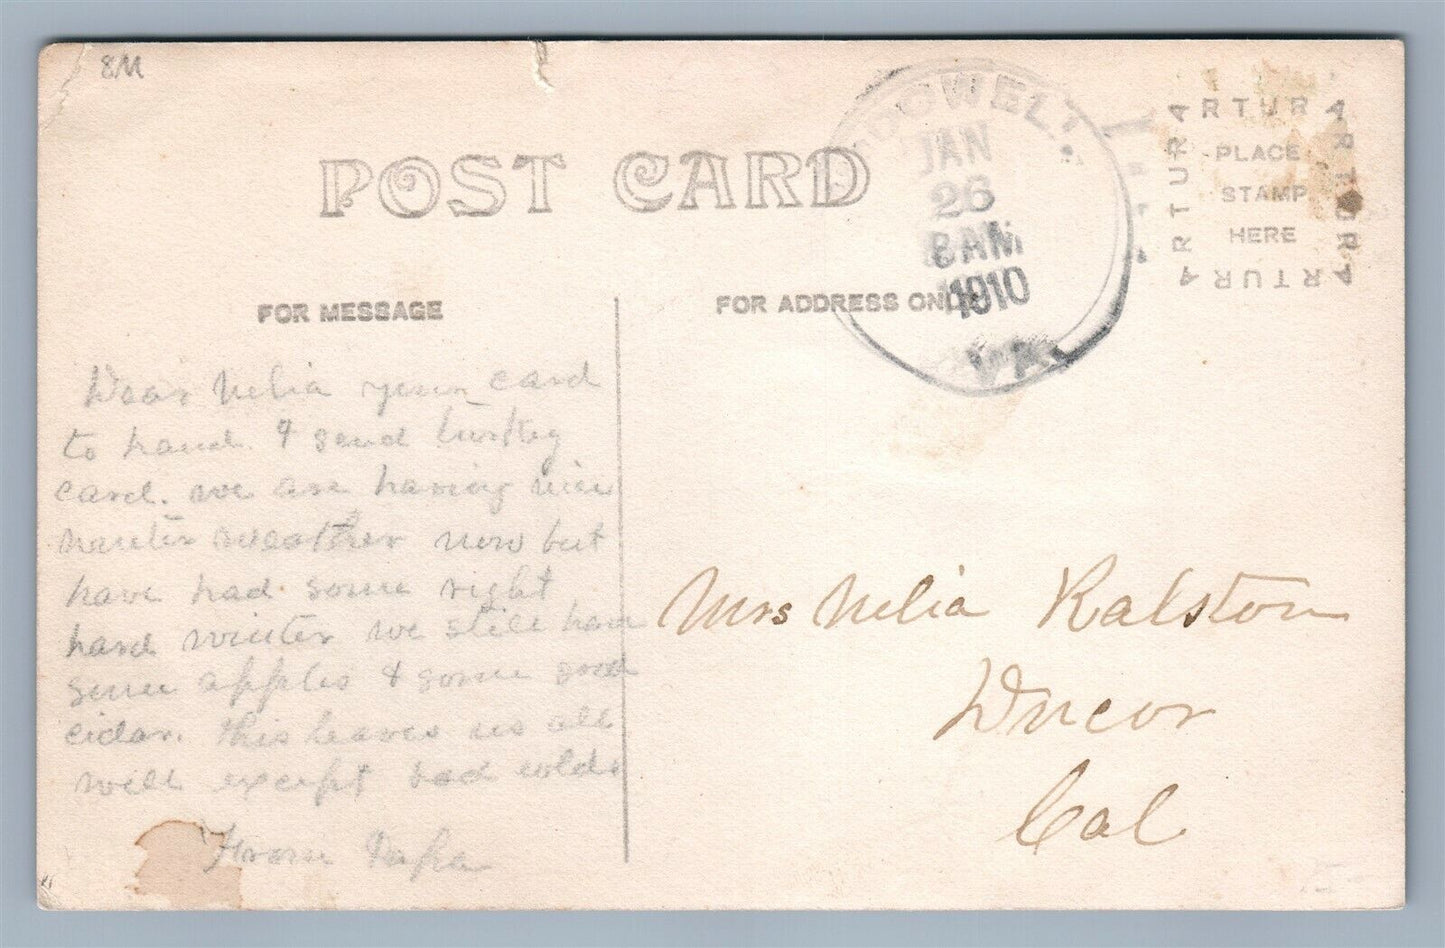 8M
POST CARD
OODWELL
JAN
26
8 AM
1910
VA.
ARTURA
ARTURA
ARTURA
ARTURA
PLACE
STAMP
HERE
FOR MESSAGE
FOR ADDRESS ONLY
Dear Nelia your card
to hand & send turkey
card. we are having nice
winter weather now but
have had some right
hard winter we still have
some apples & some good
cider. this leaves us all
well except bad colds
From Papa
Mrs Nelia Ralston
Ducor
Cal